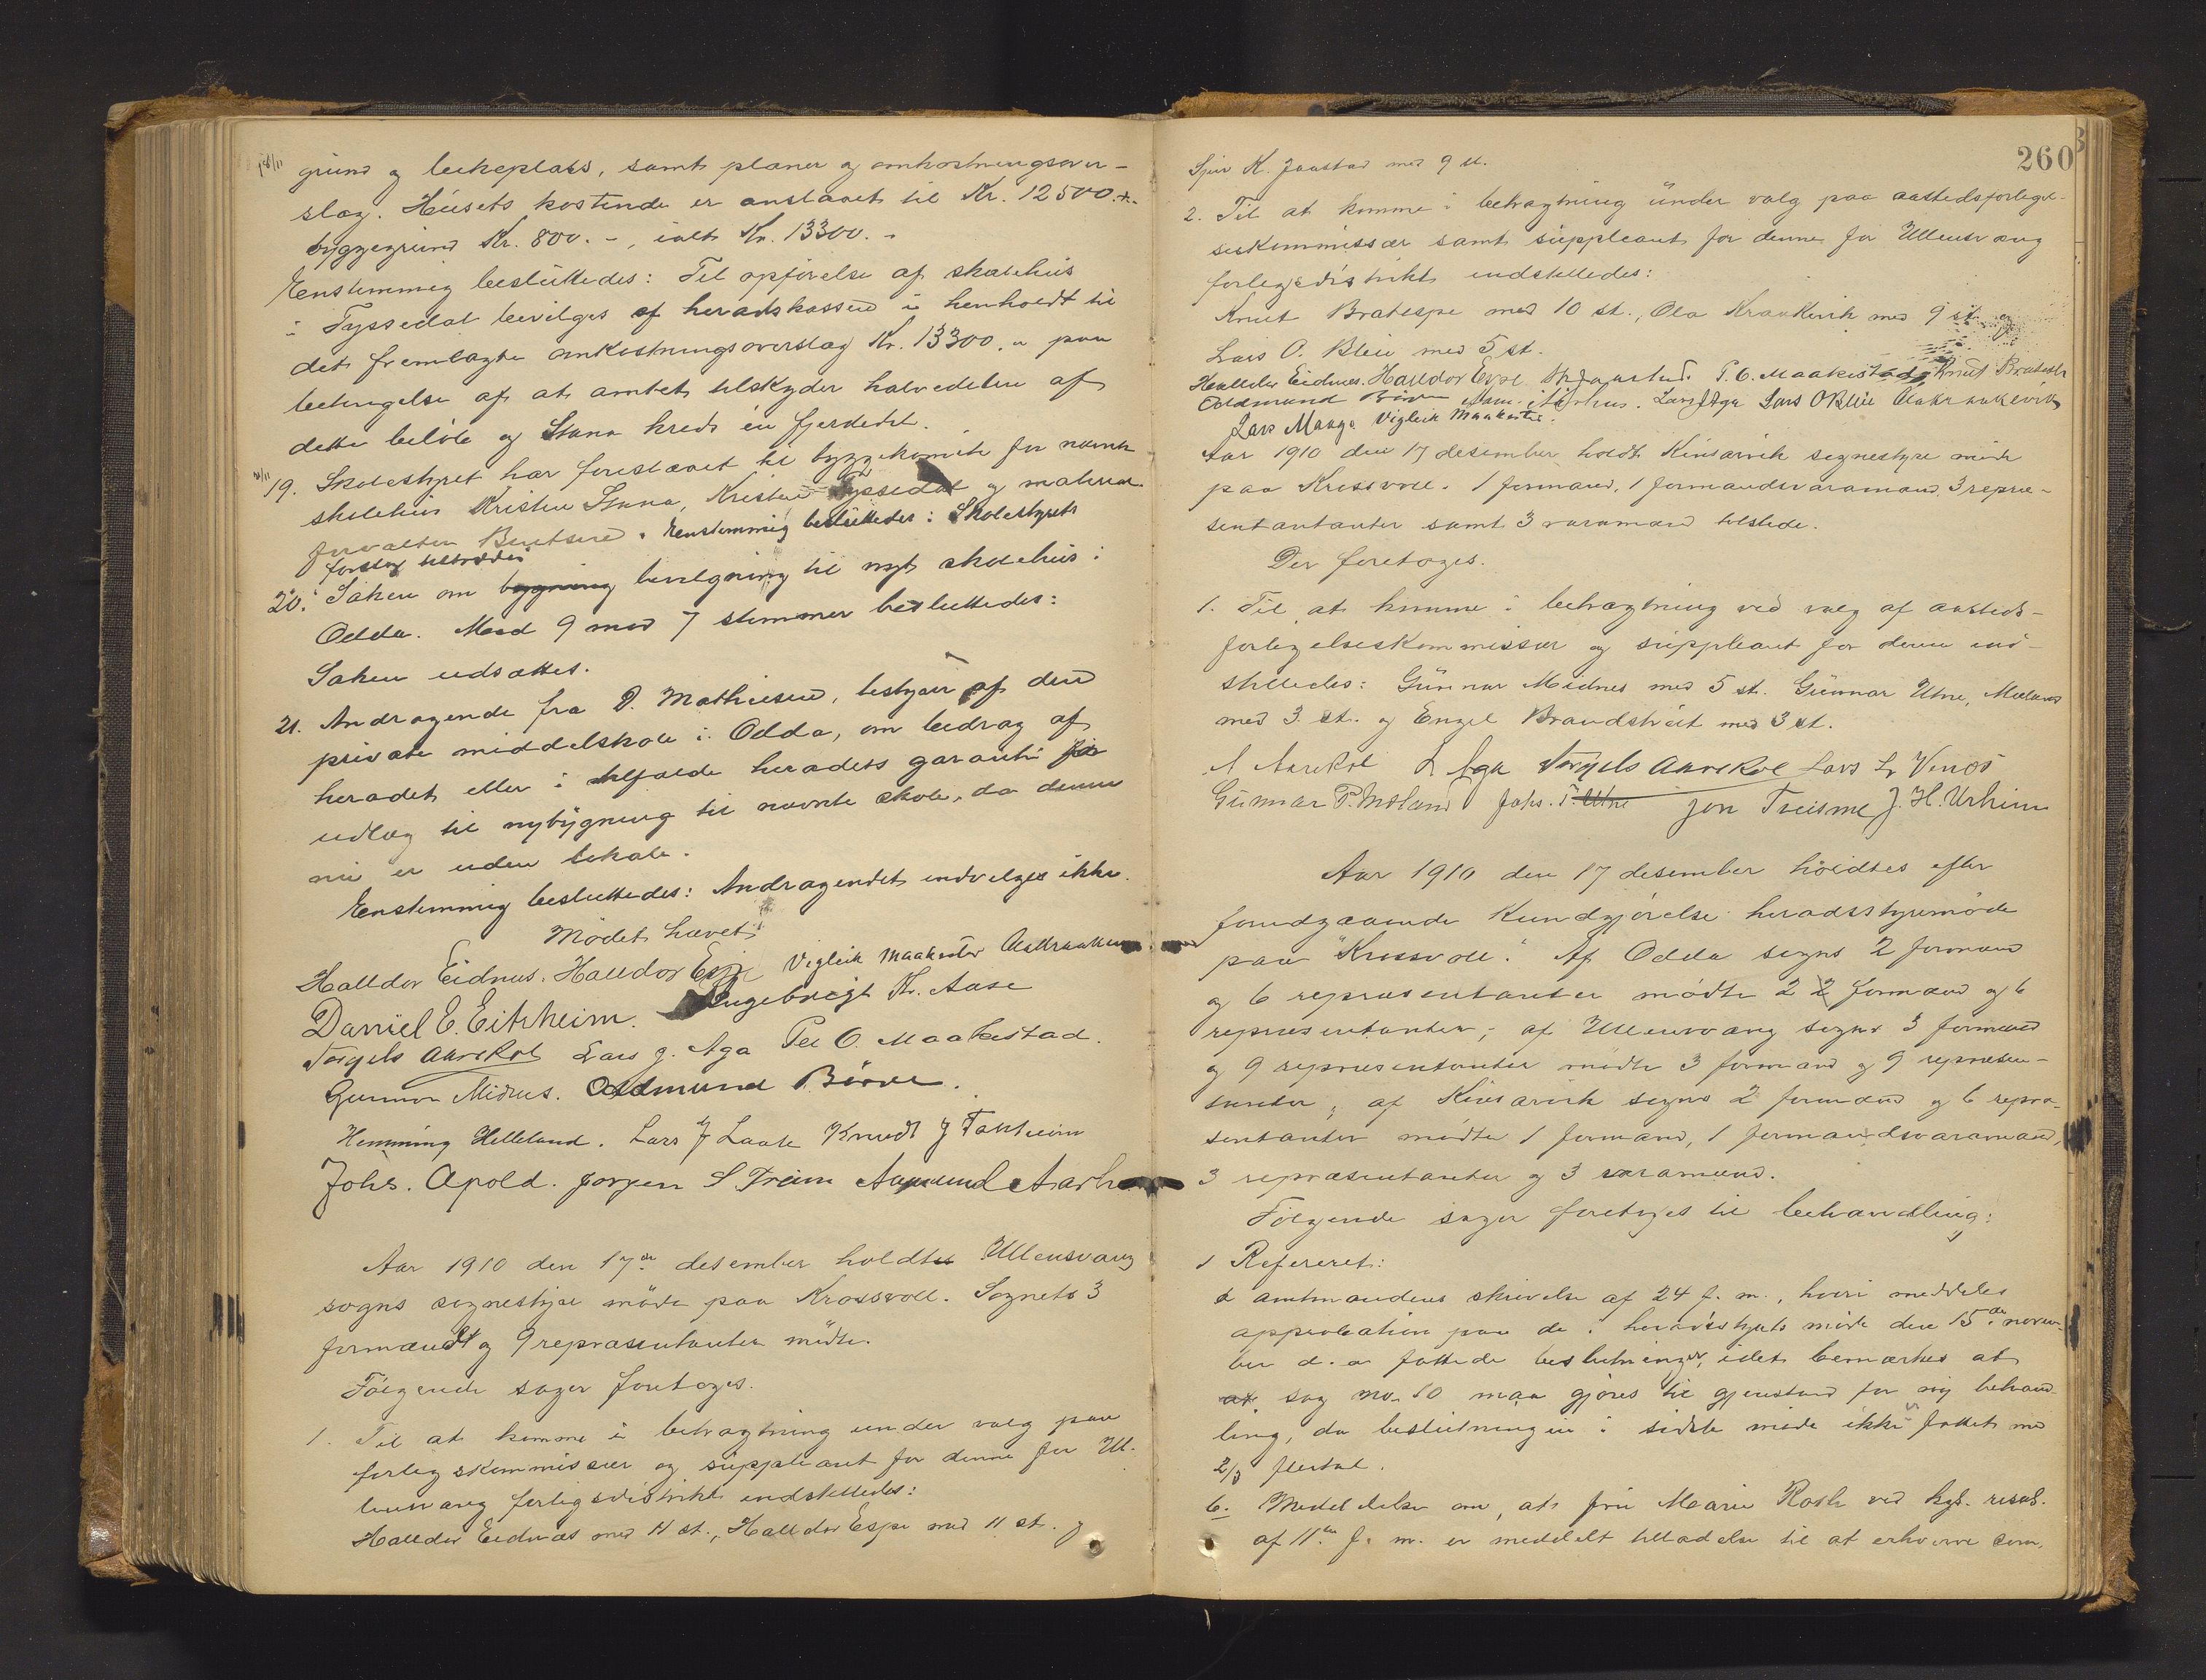 18/11
grund og lekeplads, samt planer og omkostningsover-
slag. Husets kostende er anslaaet til Kr. 12500.+.
byggegrund Kr. 800.-, ialt Kr. 13300.-
Enstemmig besluttedes: Til opførelse af skolehus
i Tyssedal bevilges af heradskassen i henhold til
det fremlagte omkostningsoverslag Kr. 13300.- paa
betingelse af at amtet tilskyder halvedelen af
dette beløb og Stana kreds en fjerdedel.
19. Skolestyret har foreslaaet til byggekomite for nævnte
skolehus Kristen Stana, Kristen Tyssedal og material-
forvalter Bentsen. Enstemmig besluttedes: Skolestyrets
forslag tiltrædes
20. Saken om bygning bevilgning til nyt skolehus i
Odda. Med 9 mod 7 stemmer besluttedes:
Saken udsættes.
21. Andragende fra D. Mathiesen, bestyrer af den
private middelskole i Odda, om bidrag af
heradet eller i tilfælde heradets garanti for
udlæg til nybygning til nævnte skole, da denne
nu er uden lokale.
Enstemmig besluttedes: Andragendet indvilges ikke.
Mødet hævet
Halldor Eidnes. Halldor Espe Vigleik Maakestad
Daniel E. Eitrheim. Engebrigt K. Aase
Torgils Aarekol Lars J. Aga Per O. Maakestad.
Gunnar Midnes. Oddmund Børve.
Hemming Helleland. Lars J Laate Knud J Tokheim
Johs. Apold. Jørgen S. Freim Aamund Aarhus
Aar 1910 den 17de desember holdtes Ullensvang
sogns sognestyre møde paa Krossvoll. Sognets 3
formænd og 9 repræsentanter mødte.
Følgende sager foretoges.
1. Til at komme i betragtning under valg paa
forligskommissær og suppleant for denne for Ul-
lensvang forligsdistrikt indstilledes:
Halldor Eidnæs med 11 st., Halldor Espe med 11 st. og
260
Sjur K. Jaastad med 9 st.
2. Til at komme i betragtning under valg paa aastedsforligel-
seskommissær samt suppleant for denne for Ullensvang
forligsdistrikt indstilledes:
Knut Bratespe med 10 st., Ola Kraakevik med 9 st og
Lars O. Bleie med 5 st.
Halldor Eidnes. Halldor Espe P. O. Maakestad, Knut Bratespe
Oddmund Børve Aam. Aarhus. Lars J Aga Lars O Bleie Ola Kraakevik
Lars Maage Vigleik Maakestad.
Aar 1910 den 17 desember holdt Kinsarvik sognestyre møde
paa Krossvoll. 1 formand, 1 formandsvaramand, 3 repræ-
sentantanter samt 3 varamænd tilstede.
Der foretoges.
1. Til at komme i betragtning ved valg af aasteds-
forligelseskommissær og suppleant for denne ind-
stilledes: Gunnar Midnes med 5 st. Gunnar Utne, Mæland
med 3 st. og Engel Brandstveit med 3 st.
A Aarekol L Aga Torgils Aarekol Lars L Vines
Gunnar P. Mæland Johs. T Utne Jon Treisme J. H. Urheim
Aar 1910 den 17 desember holdtes efter
forudgaaende kundgjørelse heradsstyremøde
paa "Krossvoll". Af Odda sogns 2 formænd
og 6 repræsentanter mødte 2 2 formænd og 6
repræsentanter; af Ullensvang sogns 3 formænd
og 9 repræsentanter mødte 3 formænd og 9 repræsen-
tanter; af Kinsarvik sogns 2 formænd og 6 repræ-
sentanter mødte 1 formand, 1 formandsvaramand,
3 repræsentanter og 3 varamænd.
Følgende sager foretoges til behandling:
1 Refereret:
a amtmandens skrivelse af 24 f. m., hvori meddeles
approbation paa de i heradsstyrets møde den 15de novem-
ber d. a fattede beslutninger, idet bemærkes at
at sag no. 10 maa gjøres til gjenstand for ny behand-
ling, da beslutningen i sidste møde ikke fattet med
2/3 flertal.
b. Meddelelse om, at fru Marie Rosk ved kgl. resol.
af 11te f. m. er meddelt tilladelse til at erhverve eien.